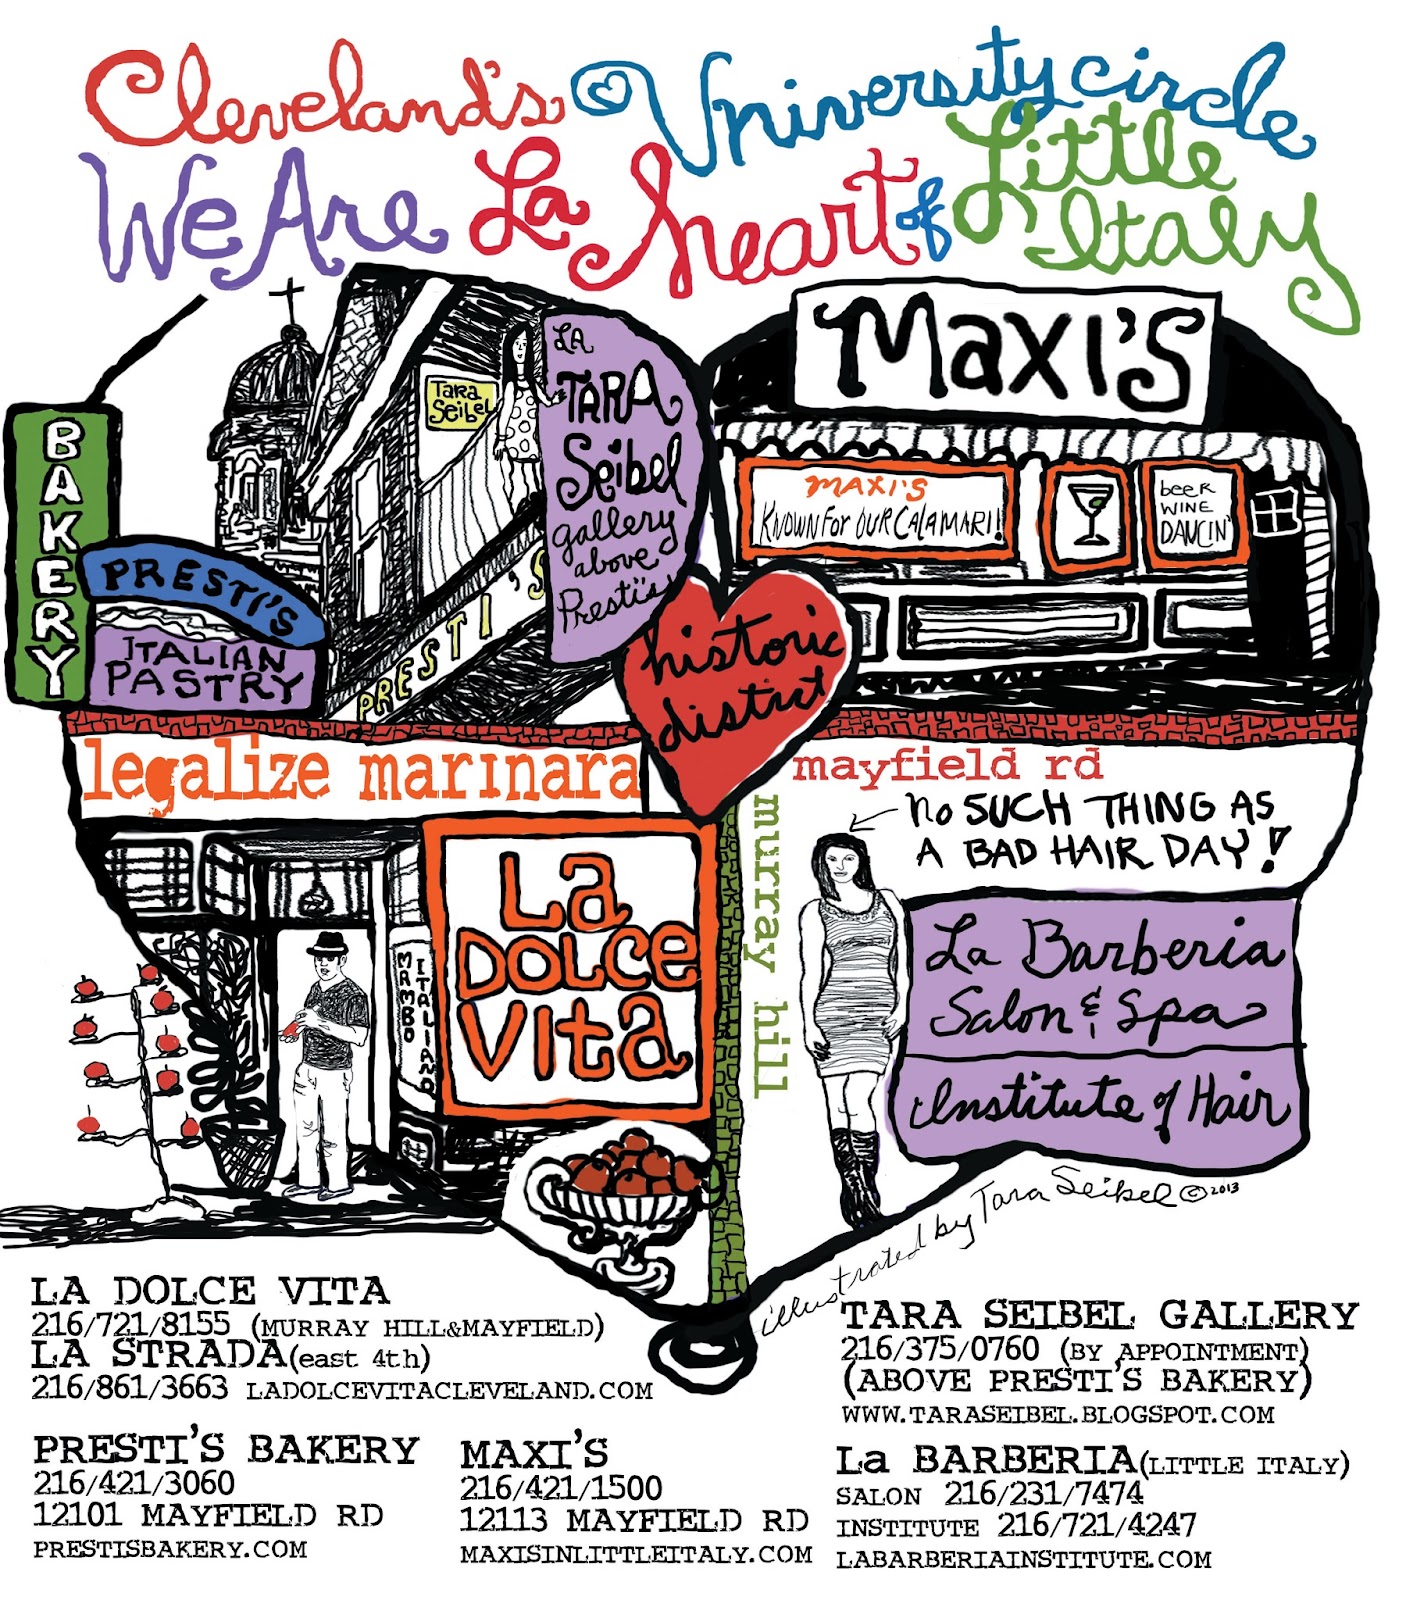 Cleveland's University circle
We Are La heart of Little Italy
BAKERY
PRESTI'S
ITALIAN
PASTRY
Tara
Seibel
PRESTI'S
LA
TARA
Seibel
gallery
above
Presti's
MAXI'S
MAXI'S
KNOWN FOR OUR CALAMARI!
beer
WINE
DANCIN'
historic
district
legalize marinara
mayfield rd
murray hill
no SUCH THING AS
A BAD HAIR DAY!
MAMBO
ITALIANO
LA
DOLCE
Vita
La Barberia
Salon & Spa
Institute of Hair
illustrated by Tara Seibel © 2013
LA DOLCE VITA
216/721/8155 (MURRAY HILL&MAYFIELD)
LA STRADA(east 4th)
216/861/3663 LADOLCEVITACLEVELAND.COM
TARA SEIBEL GALLERY
216/375/0760 (BY APPOINTMENT)
(ABOVE PRESTI'S BAKERY)
WWW.TARASEIBEL.BLOGSPOT.COM
PRESTI'S BAKERY
216/421/3060
12101 MAYFIELD RD
PRESTISBAKERY.COM
MAXI'S
216/421/1500
12113 MAYFIELD RD
MAXISINLITTLEITALY.COM
La BARBERIA(LITTLE ITALY)
SALON 216/231/7474
INSTITUTE 216/721/4247
LABARBERIAINSTITUTE.COM